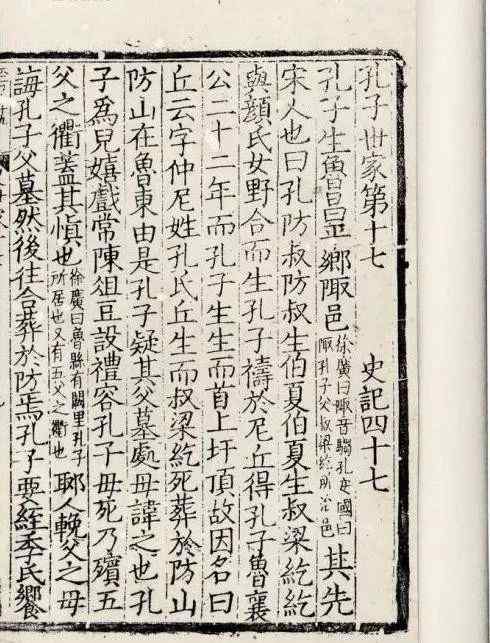 孔子世家第十七　史記四十七
孔子生魯昌平鄉陬邑徐廣曰陬音騶孔安國曰陬孔子父叔梁紇所治邑其先
宋人也曰孔防叔防叔生伯夏伯夏生叔梁紇紇
與顏氏女野合而生孔子禱於尼丘得孔子魯襄
公二十二年而孔子生生而首上圩頂故因名曰
丘云字仲尼姓孔氏丘生而叔梁紇死葬於防山
防山在魯東由是孔子疑其父墓處母諱之也孔
子爲兒嬉戲常陳俎豆設禮容孔子母死乃殯五
父之衢蓋其慎也徐廣曰魯縣有闕里孔子所居也又有五父之衢也郰人輓父之母
誨孔子父墓然後往合葬於防焉孔子要絰季氏饗